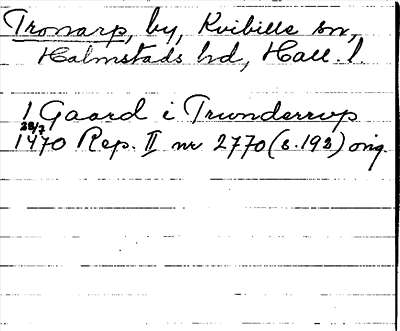 Tronarp, by, Kvibille sn,
Halmstads hd, Hall. l.
1 Gaard i Trunderrup
28/7
1470 Rep. II nr 2770 (s. 192) orig.